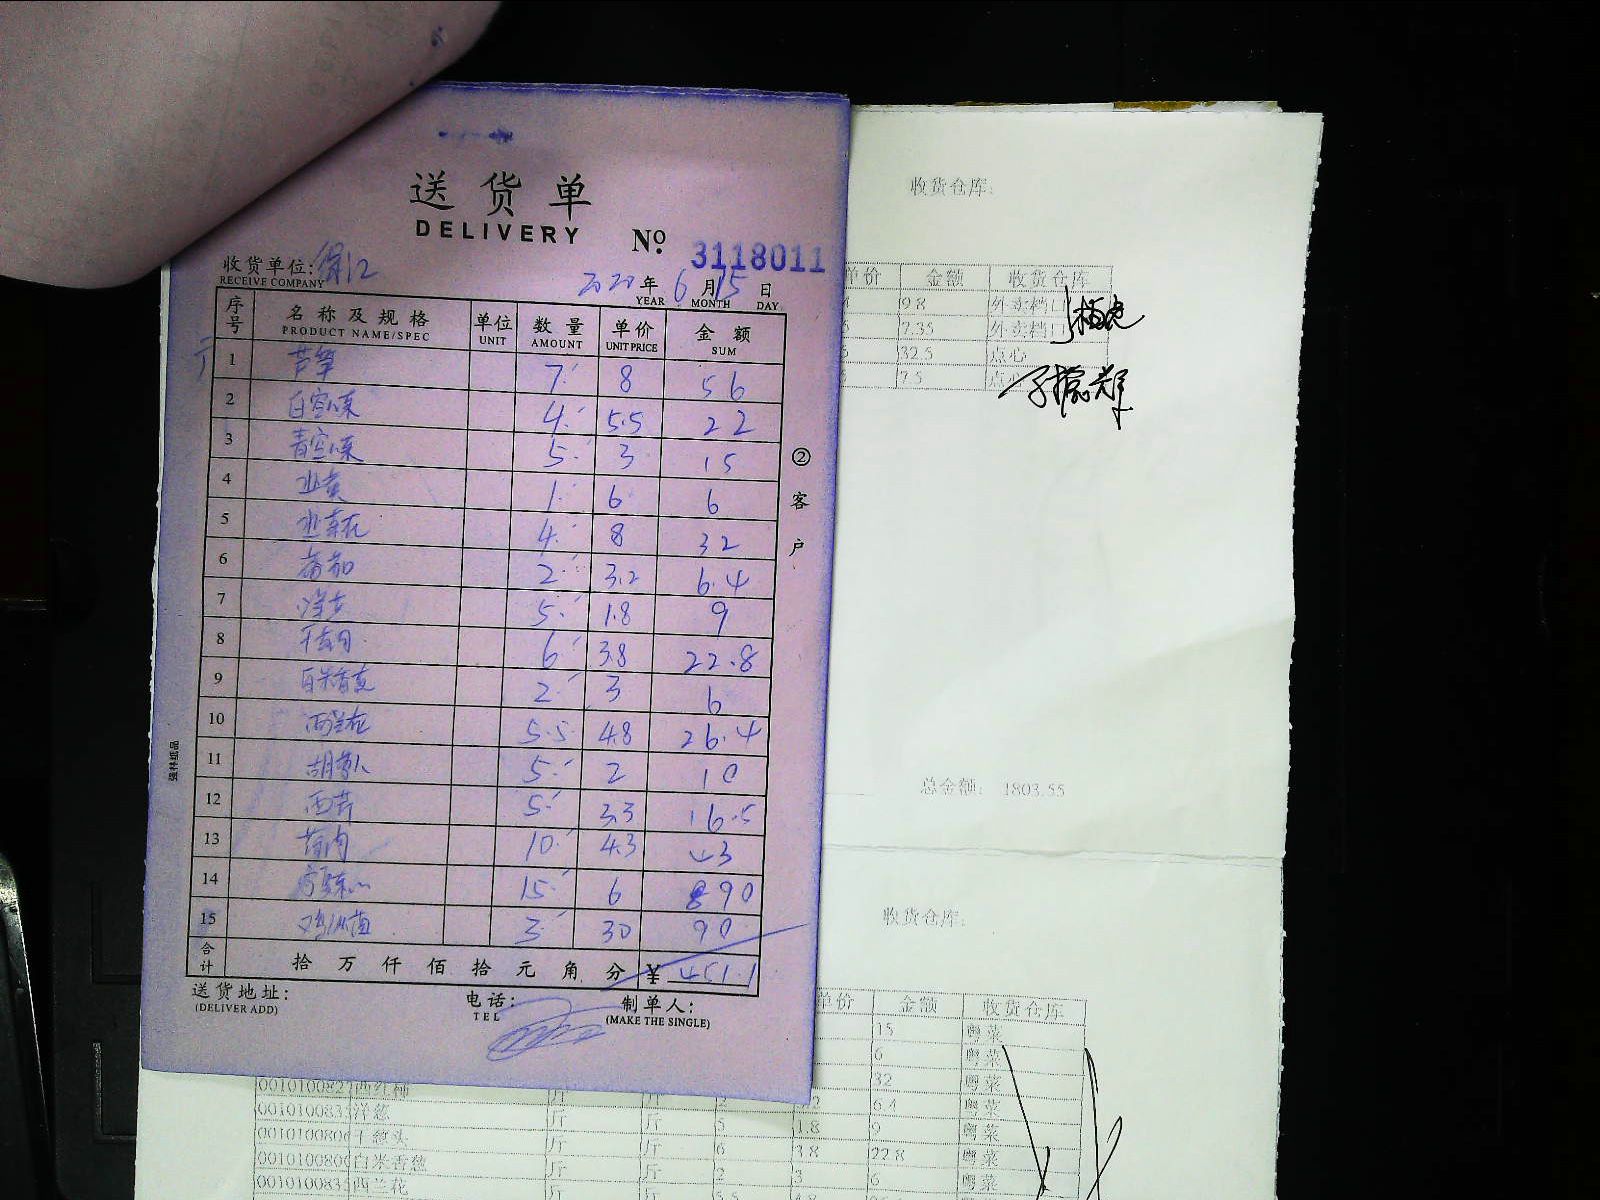 送货单
DELIVERY
No. 3118011
收货单位:
RECEIVE COMPANY
2020 年 6 月 15 日
YEAR MONTH DAY
序号 名称及规格 单位 数量 单价 金额
PRODUCT NAME/SPEC UNIT AMOUNT UNIT PRICE SUM
1 芦笋 7 8 56
2 4 5.5 22
3 5 3 15
4 韭黄 1 6 6
5 韭菜花 4 8 32
6 蕃茄 2 3.2 6.4
7 洋葱 5 1.8 9
8 干葱头 6 3.8 22.8
9 白米香葱 2 3 6
10 西兰花 5.5 4.8 26.4
11 胡萝卜 5 2 10
12 西芹 5 3.3 16.5
13 10 4.3 43
14 15 6 90
15 鸡枞菌 3 30 90
合计 拾 万 仟 佰 拾 元 角 分 ¥ 451.1
送货地址: 电话: 制单人:
(DELIVER ADD) TEL (MAKE THE SINGLE)
②客户
强林纸品
收货仓库:
单价 金额 收货仓库
9.8 外卖档口
7.35 外卖档口
32.5 点心
7.5 点心
总金额: 1803.55
收货仓库:
单价 金额 收货仓库
15 粤菜
6 粤菜
32 粤菜
西红柿 斤 斤 2 6.4 粤菜
洋葱 斤 斤 5 1.8 9 粤菜
干葱头 斤 斤 6 3.8 22.8 粤菜
白米香葱 斤 斤 2 3 6 粤菜
西兰花 斤 斤 5.5 4.8